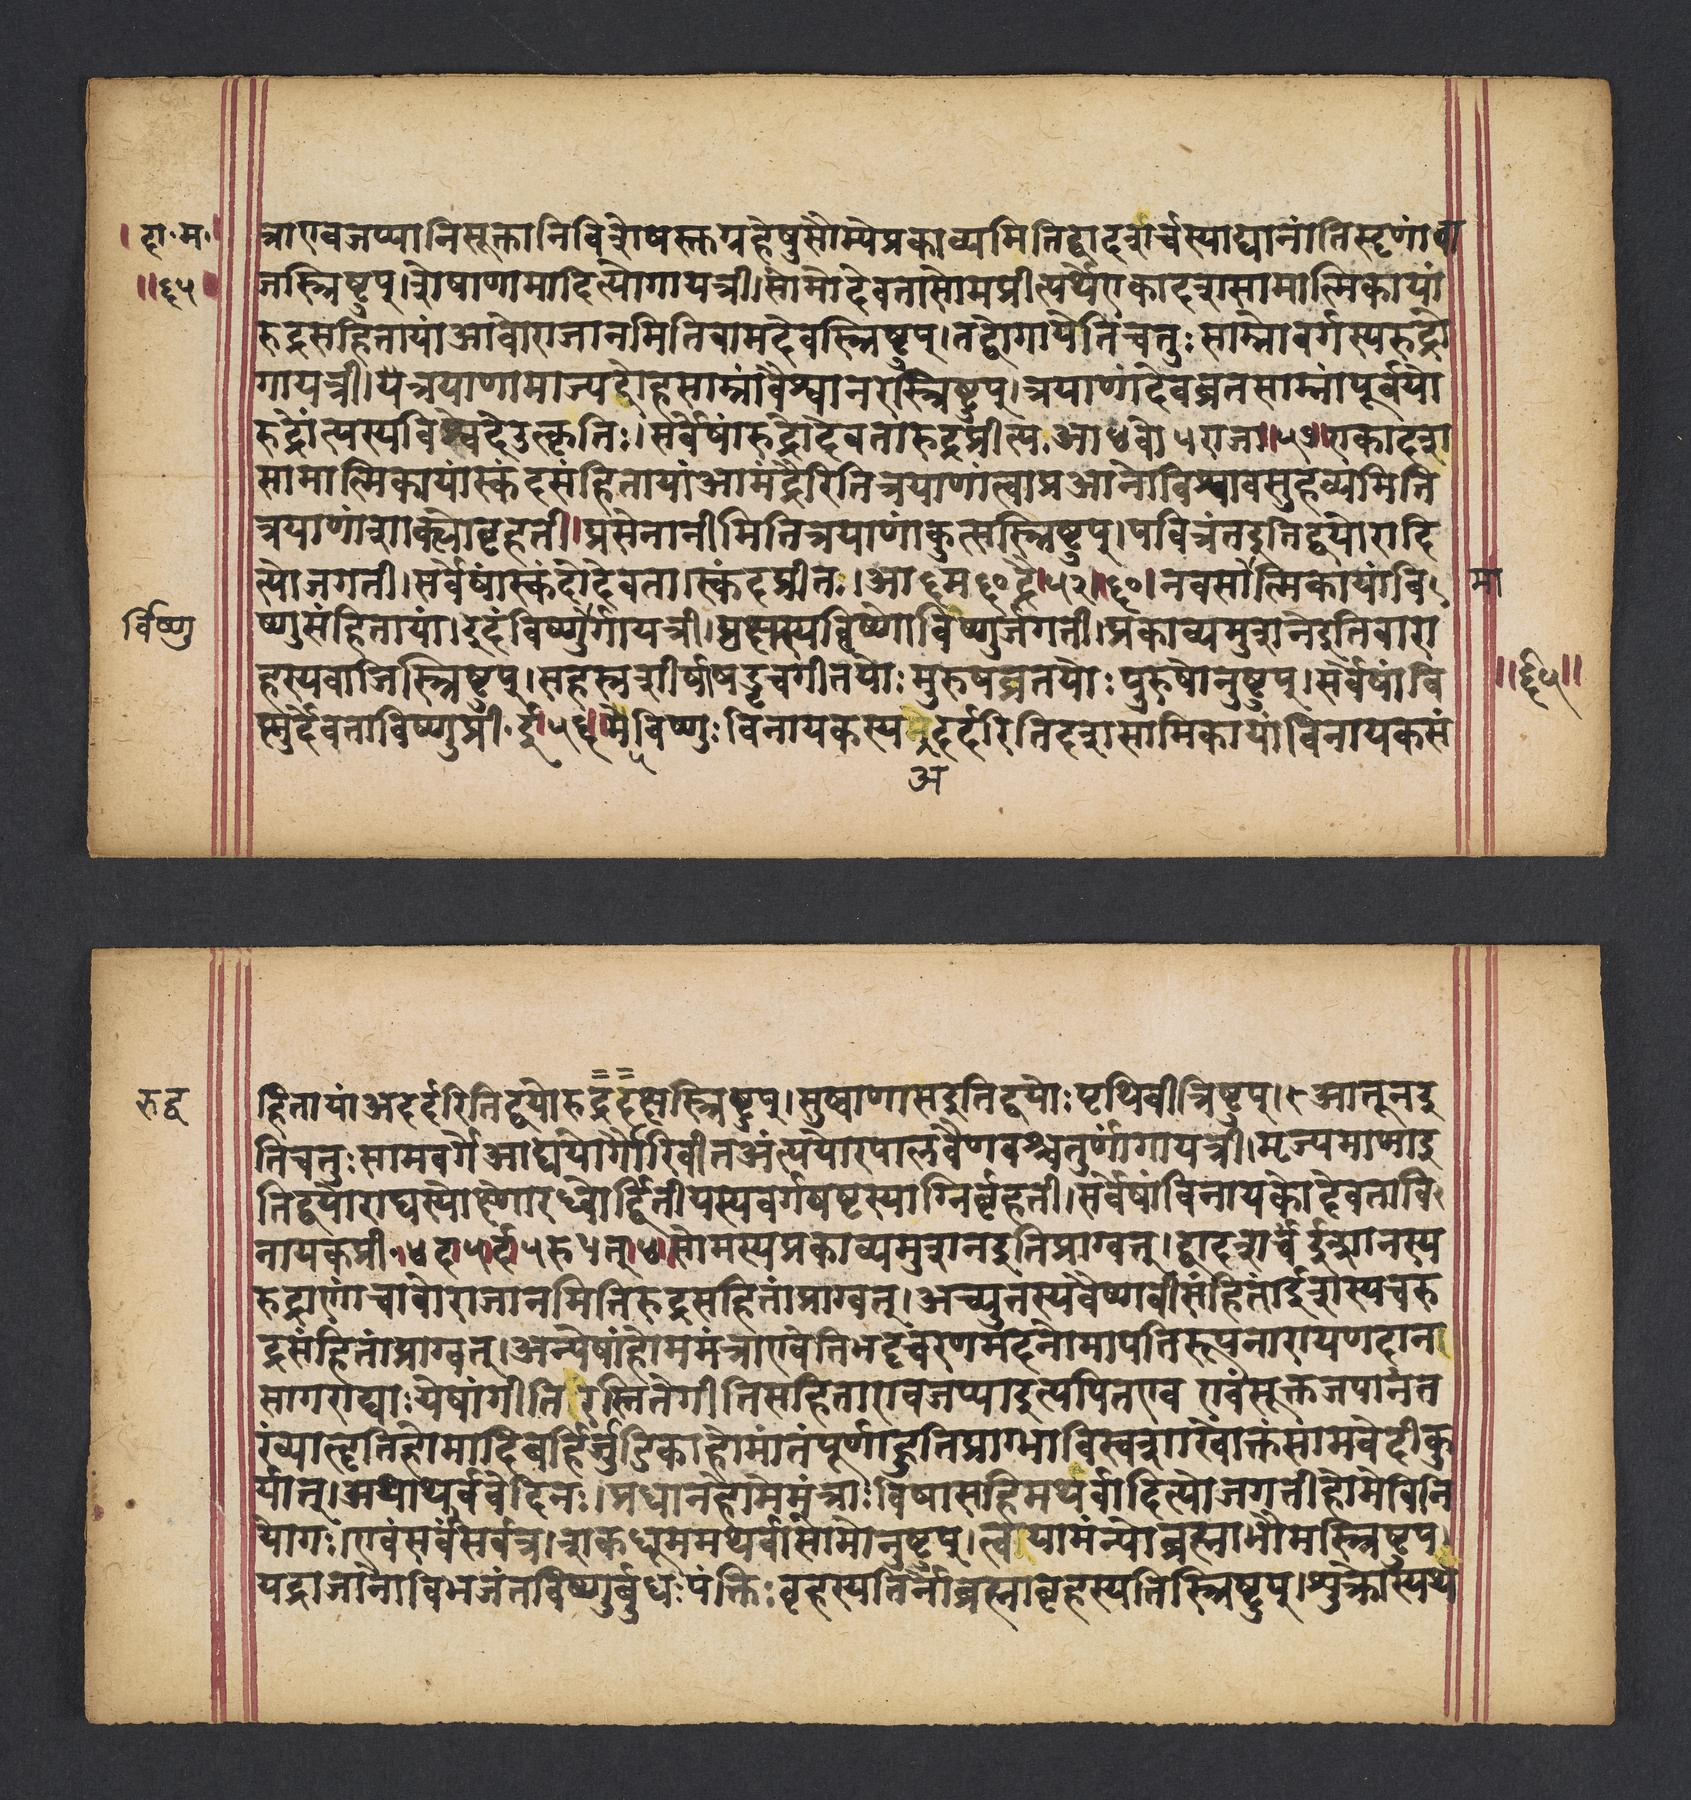 ।दा॰म॰।
॥६५॥
त्राएवजप्यानिसूक्तानिविशेषस्तग्रहेषुसौम्येप्रकाव्यमितिद्वादशर्चस्याद्यानांतिसृणांवा
जस्त्रिष्टुप्।शेषाणामादित्योगायत्री।सोमोदेवतासोमप्रीत्यर्थेएकादशसामात्मिकायां
रुद्रसंहितायांआवोराजानमितिवामदेवस्त्रिष्टुप्।तद्वोगायेतिचतुःसाम्नोवर्गस्यरुद्रो
गायत्री।यत्रयाणामाज्यदोहसाम्नांवैश्वानरास्त्रिष्टुप्।त्रयाणांदेवव्रतसाम्नांपूर्वयो
रुद्रोंत्यस्यविश्वेदेउत्कृतिः।सर्वेषांरुद्रोदेवतारुद्रप्रीत्य॰आ४वो५राजा॥५७॥एकादश
सामात्मिकायांस्कंदसंहितायांआमंद्रैरितित्रयाणांत्वाप्रआनोविश्वावसुहव्यमिति
त्रयाणांशाक्योबृहती॥प्रसेनानीमितित्रयाणांकुत्सस्त्रिष्टुप्।पवित्रंतइतिद्वयोरादि
त्योजगती।सर्वेषांस्कंदोदेवता।स्कंदप्रीत॰।आ६म६०द्रै।५२।६०।नवसामात्मिकायांवि
र्विष्णु
ष्णुसंहितायां।इदंविष्णुर्गायत्री।प्रक्षस्यविष्णोर्विष्णुर्जगती।प्रकाव्यमुशनेइतिवारा
हस्यवाजिस्त्रिष्टुप्।सहस्रशीर्षाषडृचगीतयोःमुरुषव्रतयोःपुरुषोनुष्टुप्।सर्वेषांवि
ष्णुर्देवताविष्णुप्री॰इ।५६।मेविष्णुःविनायकस्यमुदर्दरितिदशसामिकायांविनायकसं
मा
॥६५॥
अ
रुद्व
हितायांअदर्दरितिद्वयोरुद्रदक्षस्त्रिष्टुप्।सुष्वाणासइतिद्वयोःपृथिवीत्रिष्टुप्।आतूनइ
तिचतुःसामवर्गेआद्ययोर्गौरिवीतअंत्ययोरपालवैणवश्चतुर्णांगायत्री।मृज्यमानाइ
तिद्वयोराद्यस्यौक्ष्णोरंध्रोर्द्वितीयस्यवर्गषष्टस्याग्निर्बृहती।सर्वेषांविनायकोदेवतावि
नायकप्री॰।४द।५र्द।५रु५त्।७।सोमस्यप्रकाव्यमुशनेइतिप्राग्वत्।द्वादशर्चंईशानस्य
रुद्राणांचावोराजानमितिरुद्रसंहितांप्राग्वत्।अच्युतस्यवैष्णवींसंहितांईशस्यचरु
द्रसंहितांप्राग्वत्।अन्येषांहोममंत्राएवेतिभट्टचरणमदनोमापतिरूपनारायणदान
सागराद्याःयेषांगीतिरस्तितेगीतिसहिताएवजप्याइत्यपितएव एवंसूक्तजपानंत
रंव्याहृतिहोमादिबर्हिर्त्रुटिकाहोमांतंपूर्णाहुतिप्राग्भाविस्वशाखोक्तंसामवेदीकु
र्यात्।अथाथर्ववेदिनः।प्रधानहोमेमंत्राःविषासहिमथर्वादित्योजगतीहोमेविनि
योगः।एवंसर्वंसर्वत्र।शकधूममथर्वासोमोनुष्टुप्।त्वयामंन्योब्रह्माभौमस्त्रिष्टुप्
यद्राजानोविभजंतविष्णुर्बुधःपंक्तिःबृहस्पतिर्नोब्रह्माबृहस्पतिस्त्रिष्टुप्।शुक्रोस्यथ